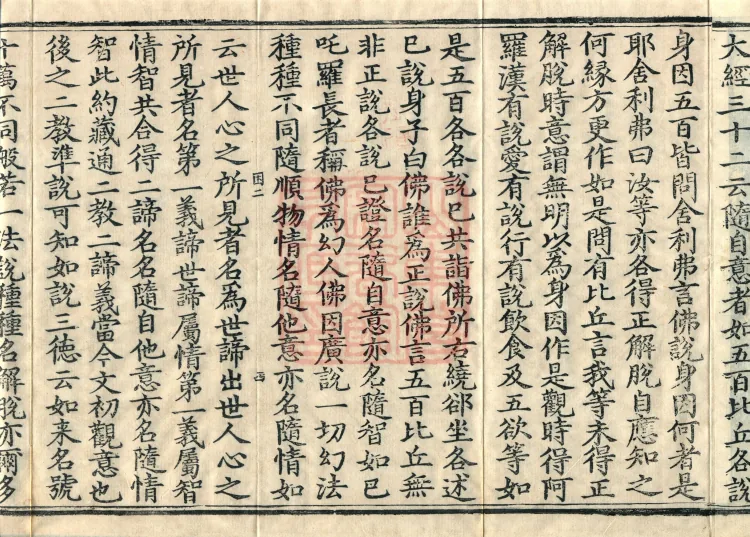 大經三十二云隨自意者如五百比丘各說
身因五百皆問舍利弗言佛說身因何者是
耶舍利弗曰汝等亦各得正解脫自應知之
何緣方更作如是問有比丘言我等未得正
解脫時意謂無明以為身因作是觀時得阿
羅漢有說愛有說行有說飲食及五欲等如
是五百各各說已共詣佛所右繞卻坐各述
已說身子白佛誰為正說佛言五百比丘無
非正說各說已證名隨自意亦名隨智如巴
吒羅長者稱佛為幻人佛因廣說一切幻法
種種不同隨順物情名隨他意亦名隨情如
因二
四
云世人心之所見者名為世諦出世人心之
所見者名第一義諦世諦屬情第一義屬智
情智共合得二諦名名隨自他意亦名隨情
智此約藏通二教二諦義當今文初觀意也
後之二教準說可知如說三德云如來名號
十萬不同般若一法說種種名解脫亦爾多